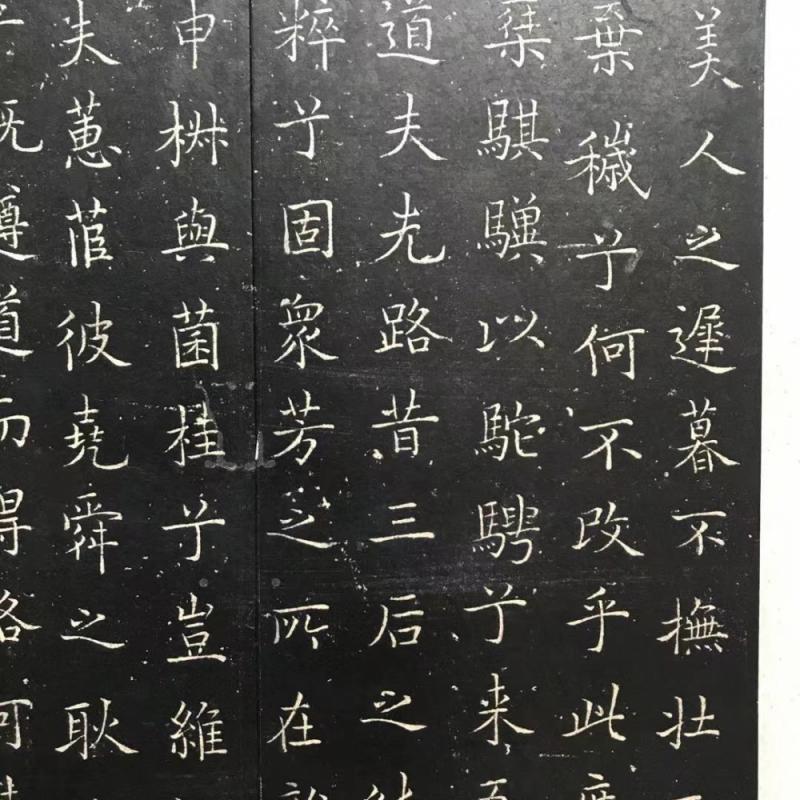 美人之遲暮不撫壯
棄穢兮何不改乎此度
椉騏驥以駝騁兮来吾
道夫先路昔三后之純
粹兮固衆芳之所在
申椒與菌桂兮豈維
夫蕙茝彼堯舜之耿
既遵道而得路何